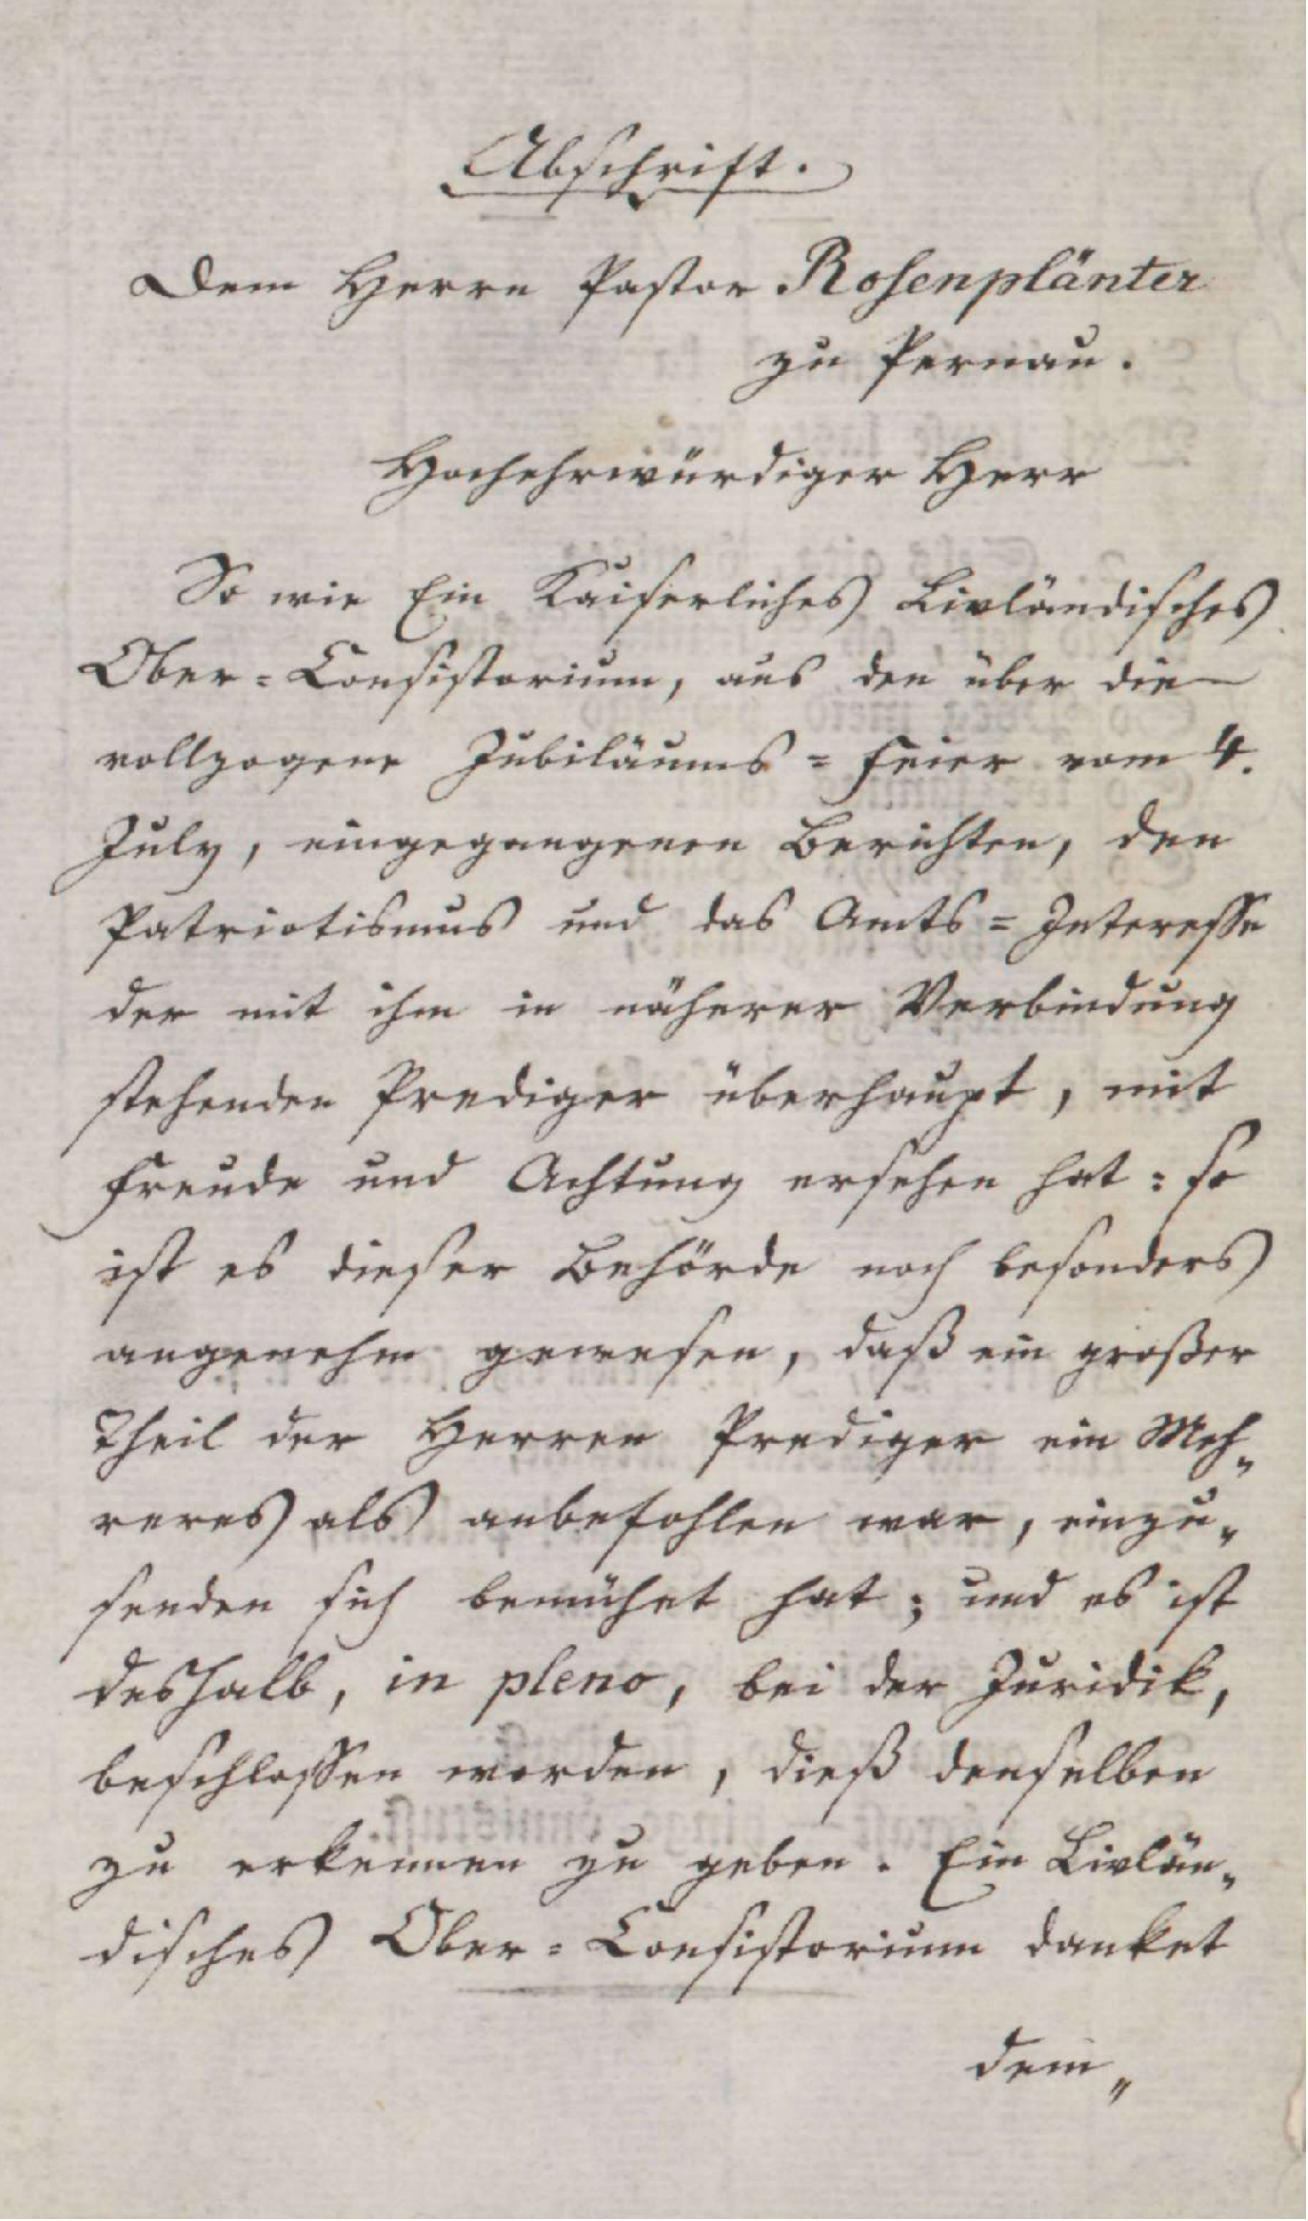 Abschrift.
Dem Herrn Pastor Rosenplänter
zu Pernau.
Hochehrwürdiger Herr
So wie Ein Kaiserliches Livländisches
Ober-Consistorium, aus den über die
vollzogene Jubiläums-Feier vom 4.
July, eingegangenen Berichten, den
Patriotismus und das Amts-Interesse
der mit ihm in näherer Verbindung
stehenden Prediger überhaupt, mit
Freude und Achtung ersehen hat: so
ist es dieser Behörde noch besonders
angenehm gewesen, daß ein großer
Theil der Herren Prediger ein Meh-
reres als anbefohlen war, einzu-
senden sich bemühet hat; und es ist
deshalb, in pleno, bei der Juridik,
beschlossen worden, dieß denselben
zu erkennen zu geben. Ein Livlän-
disches Ober-Consistorium danket
dem-